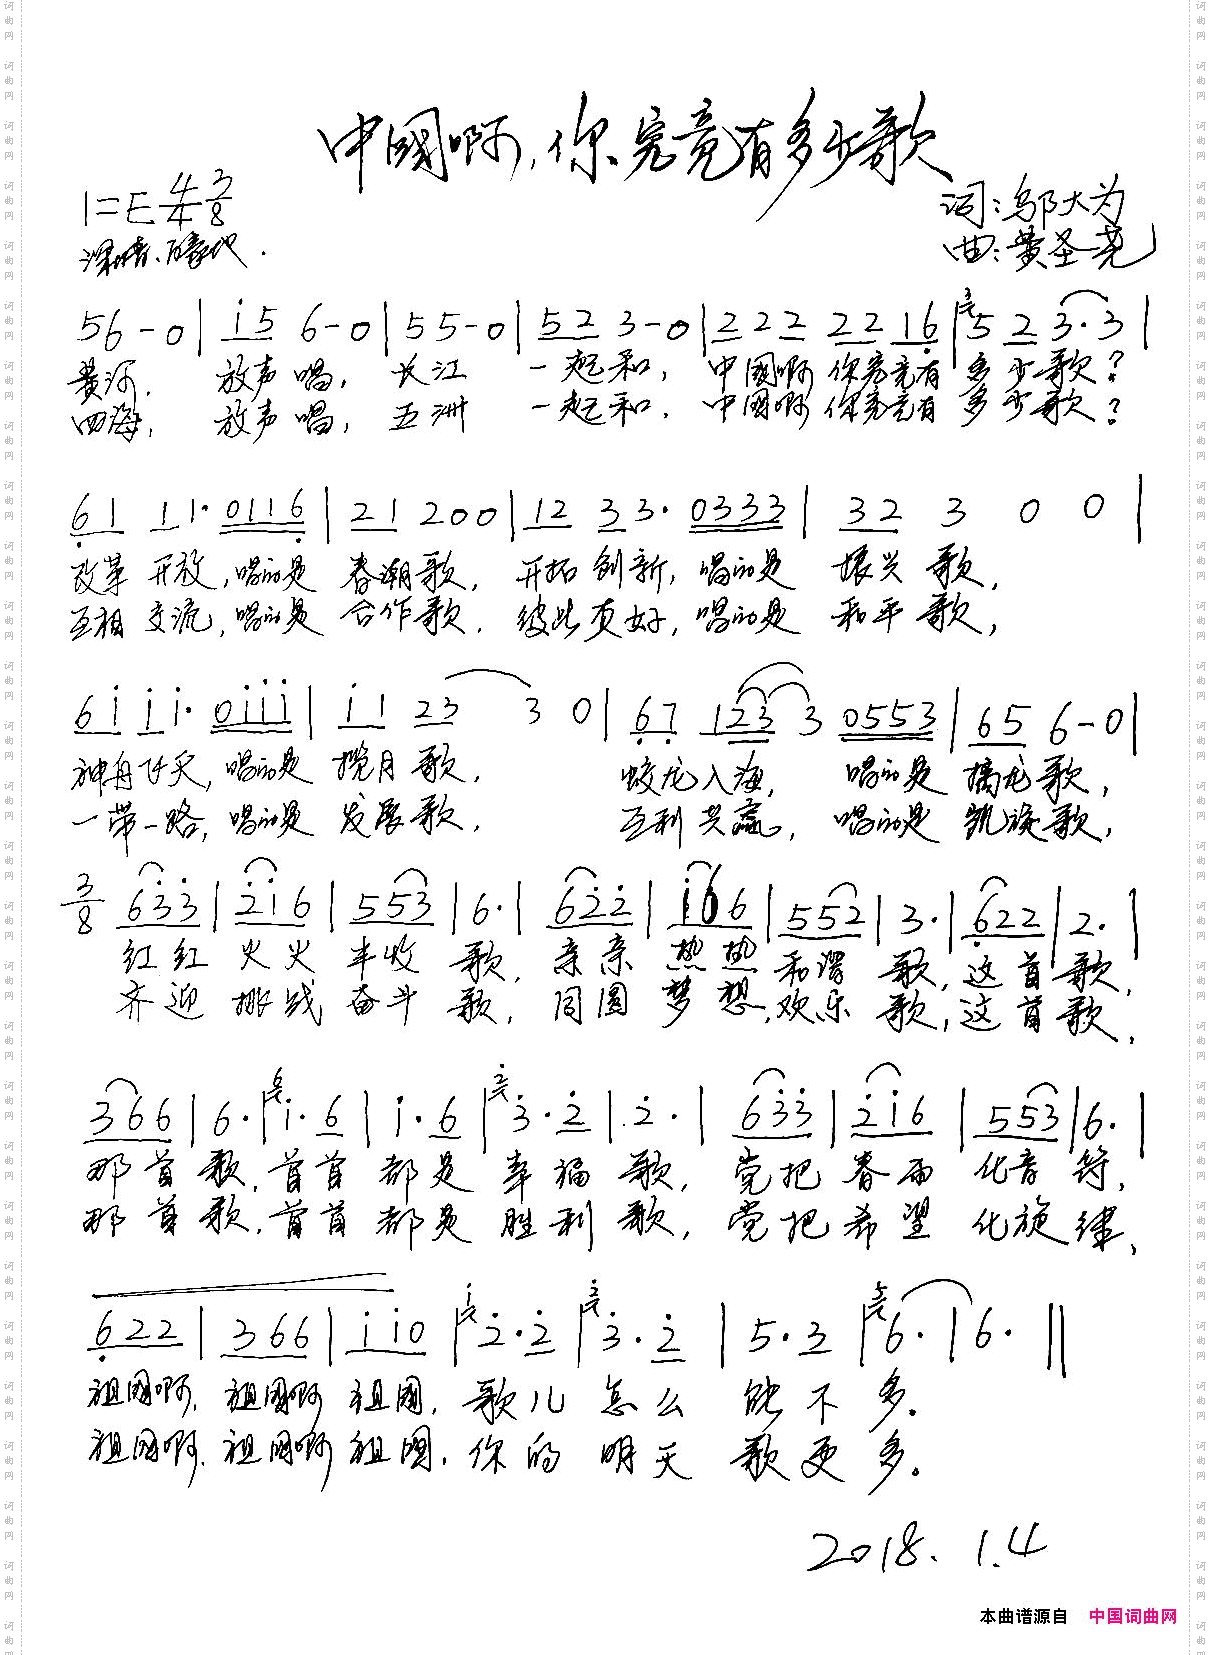 中國啊,你究竟有多少歌
1=E 4/4 3/8
词:邬大为
深情、豪迈.
曲:黄圣尧
56-0| i5 6-0|55-0|52 3-0|222 22 16|5 2 3·3|
黄河, 放声唱, 长江 一起和, 中國啊 你究竟有 多少歌?
四海, 放声唱, 五洲 一起和, 中國啊 你究竟有 多少歌?
61 11· 0116|21 200|12 33· 0333|32 3 0 0|
改革开放,唱的是 春潮歌, 开拓创新,唱的是 振兴歌,
互相交流,唱的是 合作歌, 彼此友好,唱的是 和平歌,
6i ii· 0iii|i1 23 3 0|67 123 3 0553|65 6-0|
神舟飞天,唱的是 揽月歌, 蛟龙入海, 唱的是 擒龙歌,
一带一路,唱的是 发展歌, 互利共赢, 唱的是 凯旋歌,
3/8 633|2i6|553|6·|622|i66|552|3·|622|2·|
红红火火丰收歌,亲亲热热和谐歌,这首歌,
齐迎挑战奋斗歌,同圆梦想,欢乐歌,这首歌,
366|6·|i·6|i·6|3·2|2·|633|2i6|553|6·|
那首歌,首首都是幸福歌,党把春雨化音符,
那首歌,首首都是胜利歌,党把希望化旋律,
622|366|ii0|2·2|3·2|5·3|6·|6·||
祖國啊,祖國啊祖國,歌儿怎么能不多。
祖國啊,祖國啊祖國,你的明天歌更多。
2018.1.4
本曲谱源自 中国词曲网